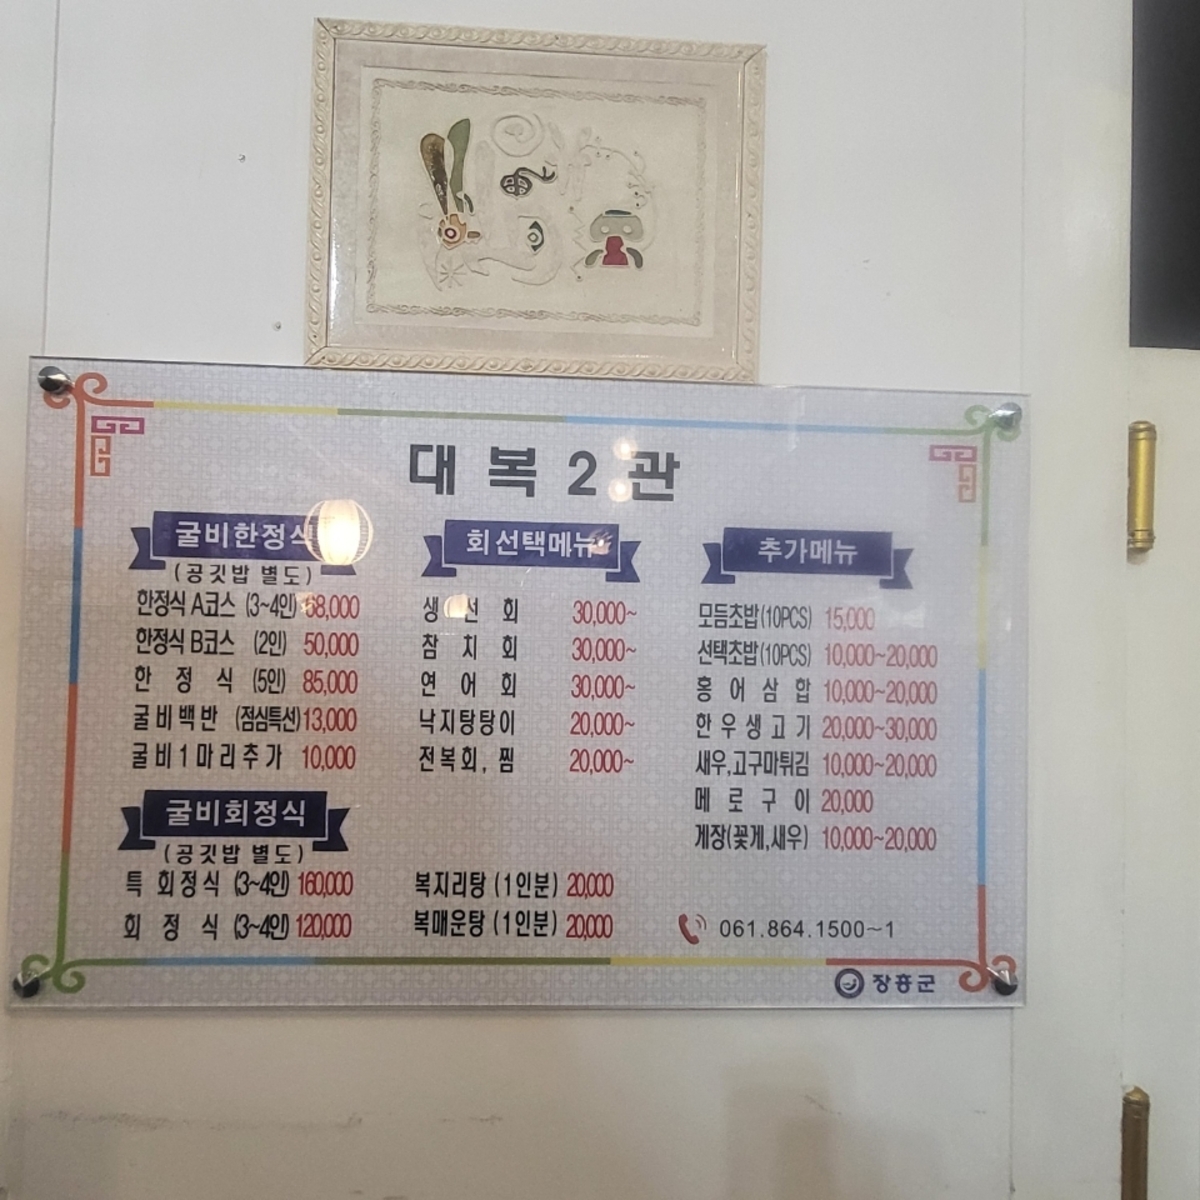 대복2관
굴비한정식
(공깃밥 별도)
한정식 A코스 (3~4인) 68,000
한정식 B코스 (2인) 50,000
한정식 (5인) 85,000
굴비백반 (점심특선) 13,000
굴비1마리추가 10,000
굴비회정식
(공깃밥 별도)
특 회정식 (3~4인) 160,000
회정식 (3~4인) 120,000
회선택메뉴
생선회 30,000~
참치회 30,000~
연어회 30,000~
낙지탕탕이 20,000~
전복회, 찜 20,000~
복지리탕 (1인분) 20,000
복매운탕 (1인분) 20,000
추가메뉴
모듬초밥(10PCS) 15,000
선택초밥(10PCS) 10,000~20,000
홍어삼합 10,000~20,000
한우생고기 20,000~30,000
새우,고구마튀김 10,000~20,000
메로구이 20,000
게장(꽃게,새우) 10,000~20,000
061.864.1500~1
장흥군